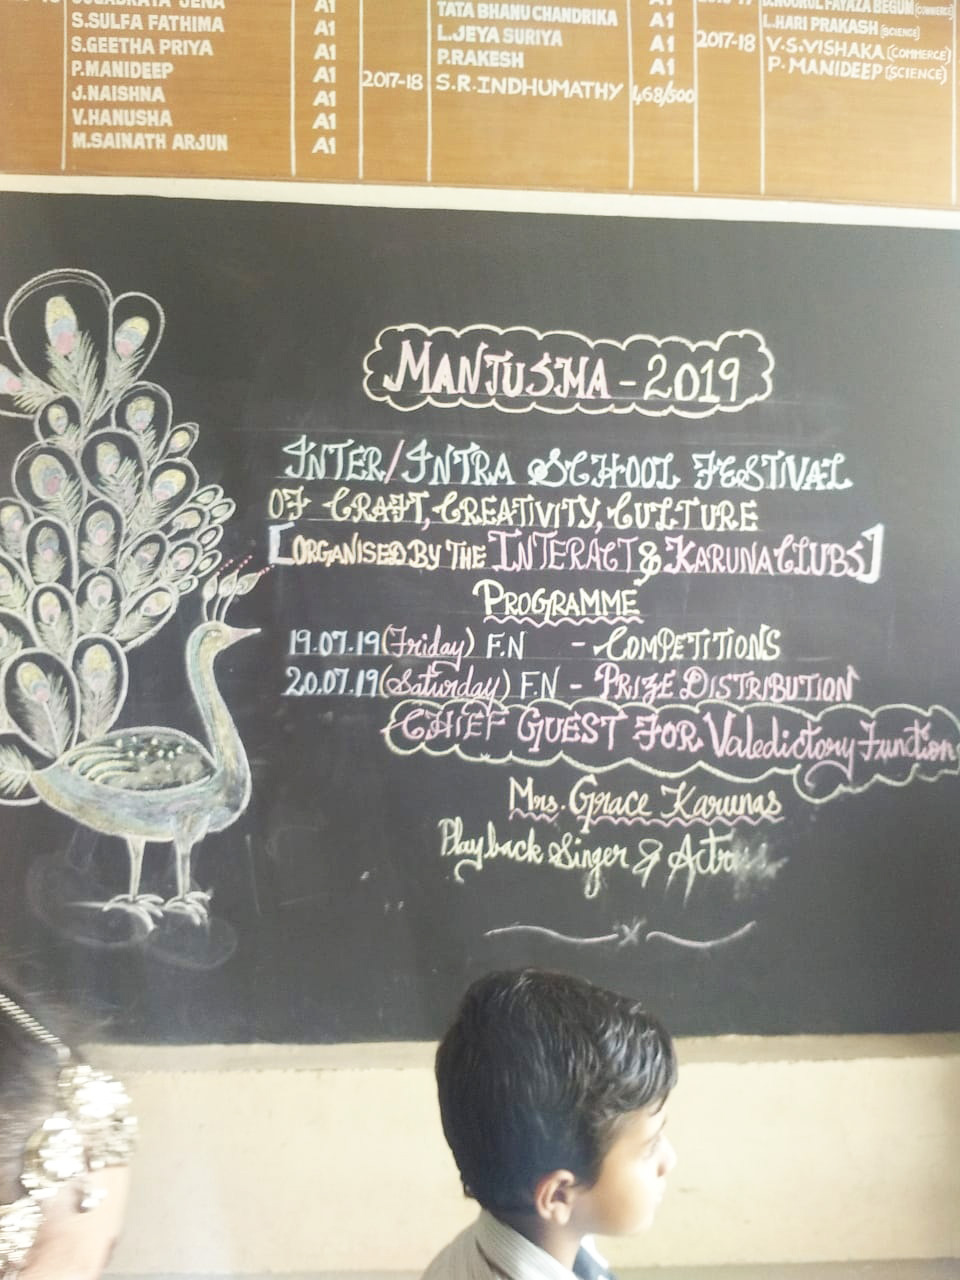 S.SULFA FATHIMA A1
S.GEETHA PRIYA A1
P.MANIDEEP A1
J.NAISHNA A1
V.HANUSHA A1
M.SAINATH ARJUN A1
2017-18
TATA BHANU CHANDRIKA A1
L.JEYA SURIYA A1
P.RAKESH A1
S.R.INDHUMATHY 468/500
2017-18
L.HARI PRAKASH (SCIENCE)
V.S.VISHAKA (COMMERCE)
P.MANIDEEP (SCIENCE)
MANJUSMA - 2019
INTER/INTRA SCHOOL FESTIVAL
OF CRAFT, CREATIVITY, CULTURE
[ORGANISED BY THE INTERACT & KARUNA CLUBS]
PROGRAMME
19.07.19 (Friday) F.N - COMPETITIONS
20.07.19 (Saturday) F.N - PRIZE DISTRIBUTION
CHIEF GUEST FOR Valedictory Function
Mrs. Grace Karunas
Playback Singer &